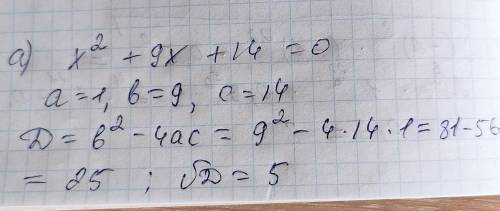 а) x² + 9x + 14 = 0
a = 1, в = 9, c = 14
Д = в² - 4ac = 9² - 4·14·1 = 81 - 56
= 25 ; √Д = 5